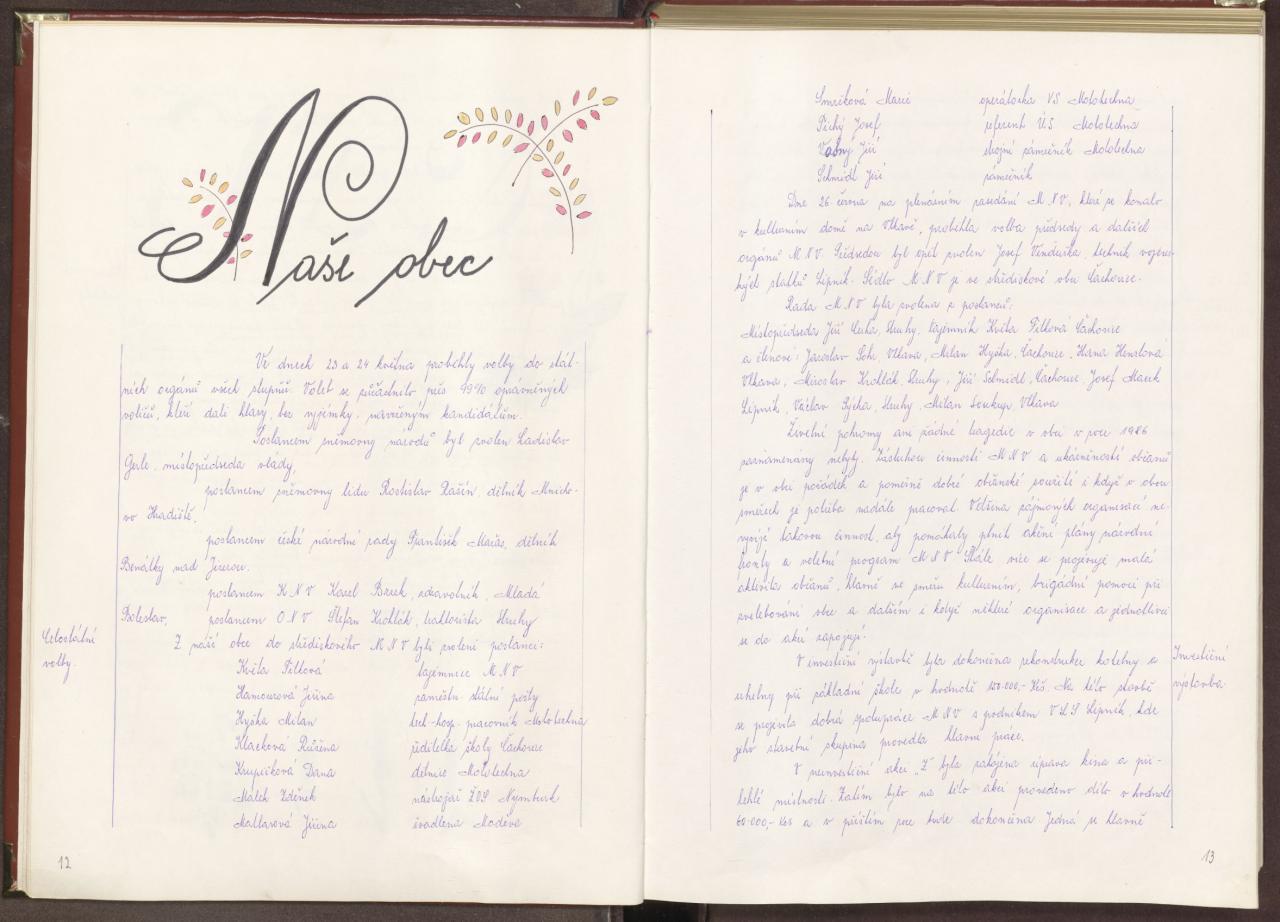 Naše obec
Ve dnech 23 a 24 května proběhly volby do stát-
ních orgánů všech stupňů. Voleb se zúčastnilo přes 99% oprávněných
voličů, kteří dali hlasy, bez výjimky, navrženým kandidátům.
Poslancem sněmovny národů byl zvolen Ladislav
Gerle, místopředseda vlády,
poslancem sněmovny lidu Rostislav Rašín, dělník Mnicho-
vo Hradiště,
poslancem české národní rady František Mačas, dělník
Benátky nad Jizerou.
poslancem KNV Karel Bzrek, zdravotník, Mladá
Boleslav,
poslancem ONV Štefan Krohlák, traktorista Struhy
Celostátní
volby.
Z naší obce do střediskového MNV byli zvoleni poslanci:
Květa Pitková tajemnice MNV
Hamouzová Jiřina zaměstn. státní pošty
Hyška Milan tech-hosp. pracovník Mototechna
Klacková Růžena ředitelka školy Čachovice
Krupičková Dana dělnice Mototechna
Malek Zdeněk nástrojař ŽOS Nymburk
Maltarová Jiřina švadlena Moděva
12
Smržková Marie operátorka VS Mototechna
Tichý Josef referent ÚS Mototechna
Vabný Jiří strojní zámečník Mototechna
Schmidl Jiří zámečník
Dne 26 června na plenárním zasedání MNV, které se konalo
v kulturním domě na Vlkavě, proběhla volba předsedy a dalších
orgánů MNV. Předsedou byl opět zvolen Josef Vinduška, technik vojens-
kých statků Lipník. Sídlo MNV je ve střediskové obci Čachovice.
Rada MNV byla zvolena z poslanců:
Místopředseda Jiří Cerha, Struhy, tajemník Květa Pitková Čachovice
a členové: Jaroslav Sohr, Vlkava, Milan Hyška, Čachovice, Hana Henslová
Vlkava, Miroslav Krohlák, Struhy, Jiří Schmidl, Čachovice, Josef Marek
Lipník, Václav Rýska, Struhy, Milan Soukup, Vlkava
Živelní pohromy ani žádné tragedie v obci v roce 1986
zaznamenány nebyly. Zásluhou činnosti MNV a ukázněností občanů
je v obci pořádek a poměrně dobré občanské soužití i když v obou
směrech je potřeba nadále pracovat. Většina zájmových organisací ne-
vyvíjí takovou činnost, aby pomáhaly plnit akční plány národní
fronty a volební program MNV. Stále více se projevuje malá
aktivita občanů, hlavně ve směru kulturním, brigádní pomoci při
zvelebování obce a dalším i když některé organisace a jednotlivci
se do akcí zapojují.
Investiční
výstavba.
V investiční výstavbě byla dokončena rekonstrukce kotelny a
uhelny při základní škole v hodnotě 100.000,- Kčs. Na této stavbě
se projevila dobrá spolupráce MNV s podnikem VLS Lipník, kde
jeho stavební skupina provedla hlavní práce.
V neinvestiční akci „Z" byla zahájena úprava kina a při-
lehlé místnosti. Zatím bylo na této akci provedeno dílo v hodnotě
60.000,- Kčs a v příštím roce bude dokončena. Jedná se hlavně
13